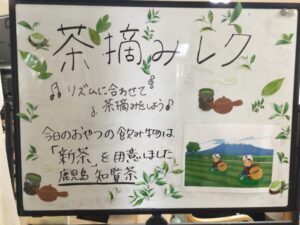 茶摘みレク
♪リズムに合わせて
♪茶摘みをしよう♪
今日のおやつの飲み物は
「新茶」を用意しました
鹿児島 知覧茶